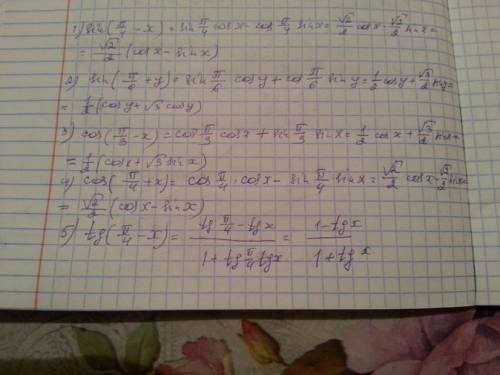 1) sin(π/4 - x) = sin π/4 cosx - cos π/4 sinx = √2/2 cosx - √2/2 sinx =
= √2/2 (cosx - sinx)
2) sin(π/6 + y) = sin π/6 cosy + cos π/6 siny = 1/2 cosy + √3/2 siny =
= 1/2 (cosy + √3 cosy)
3) cos(π/3 - x) = cos π/3 cosx + sin π/3 sinx = 1/2 cosx + √3/2 sinx =
= 1/2 (cosx + √3 sinx)
4) cos(π/4 + x) = cos π/4 · cosx - sin π/4 sinx = √2/2 cosx - √2/2 sinx =
= √2/2 (cosx - sinx)
5) tg(π/4 - x) = (tg π/4 - tgx)/(1 + tg π/4 tgx) = (1 - tgx)/(1 + tgx)